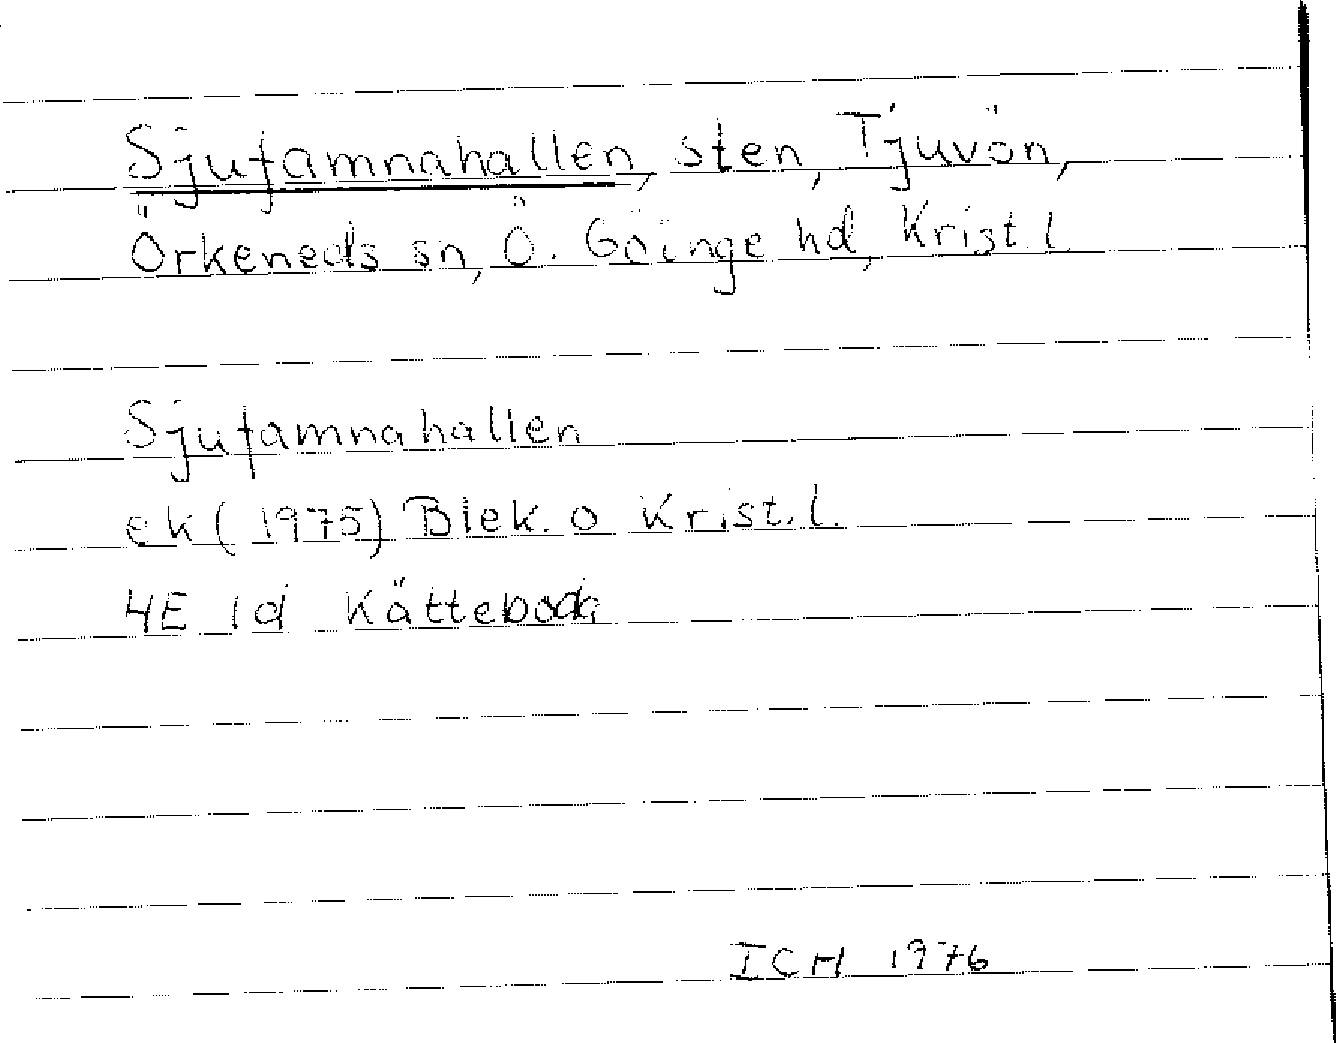 Sjufamnahallen, sten, Tjuvön,
Örkeneds sn, Ö. Göinge hd, Krist. l
Sjufamnahallen
ek (1975) Blek. o Krist. l.
4E 1d Kätteboda
ICH 1976